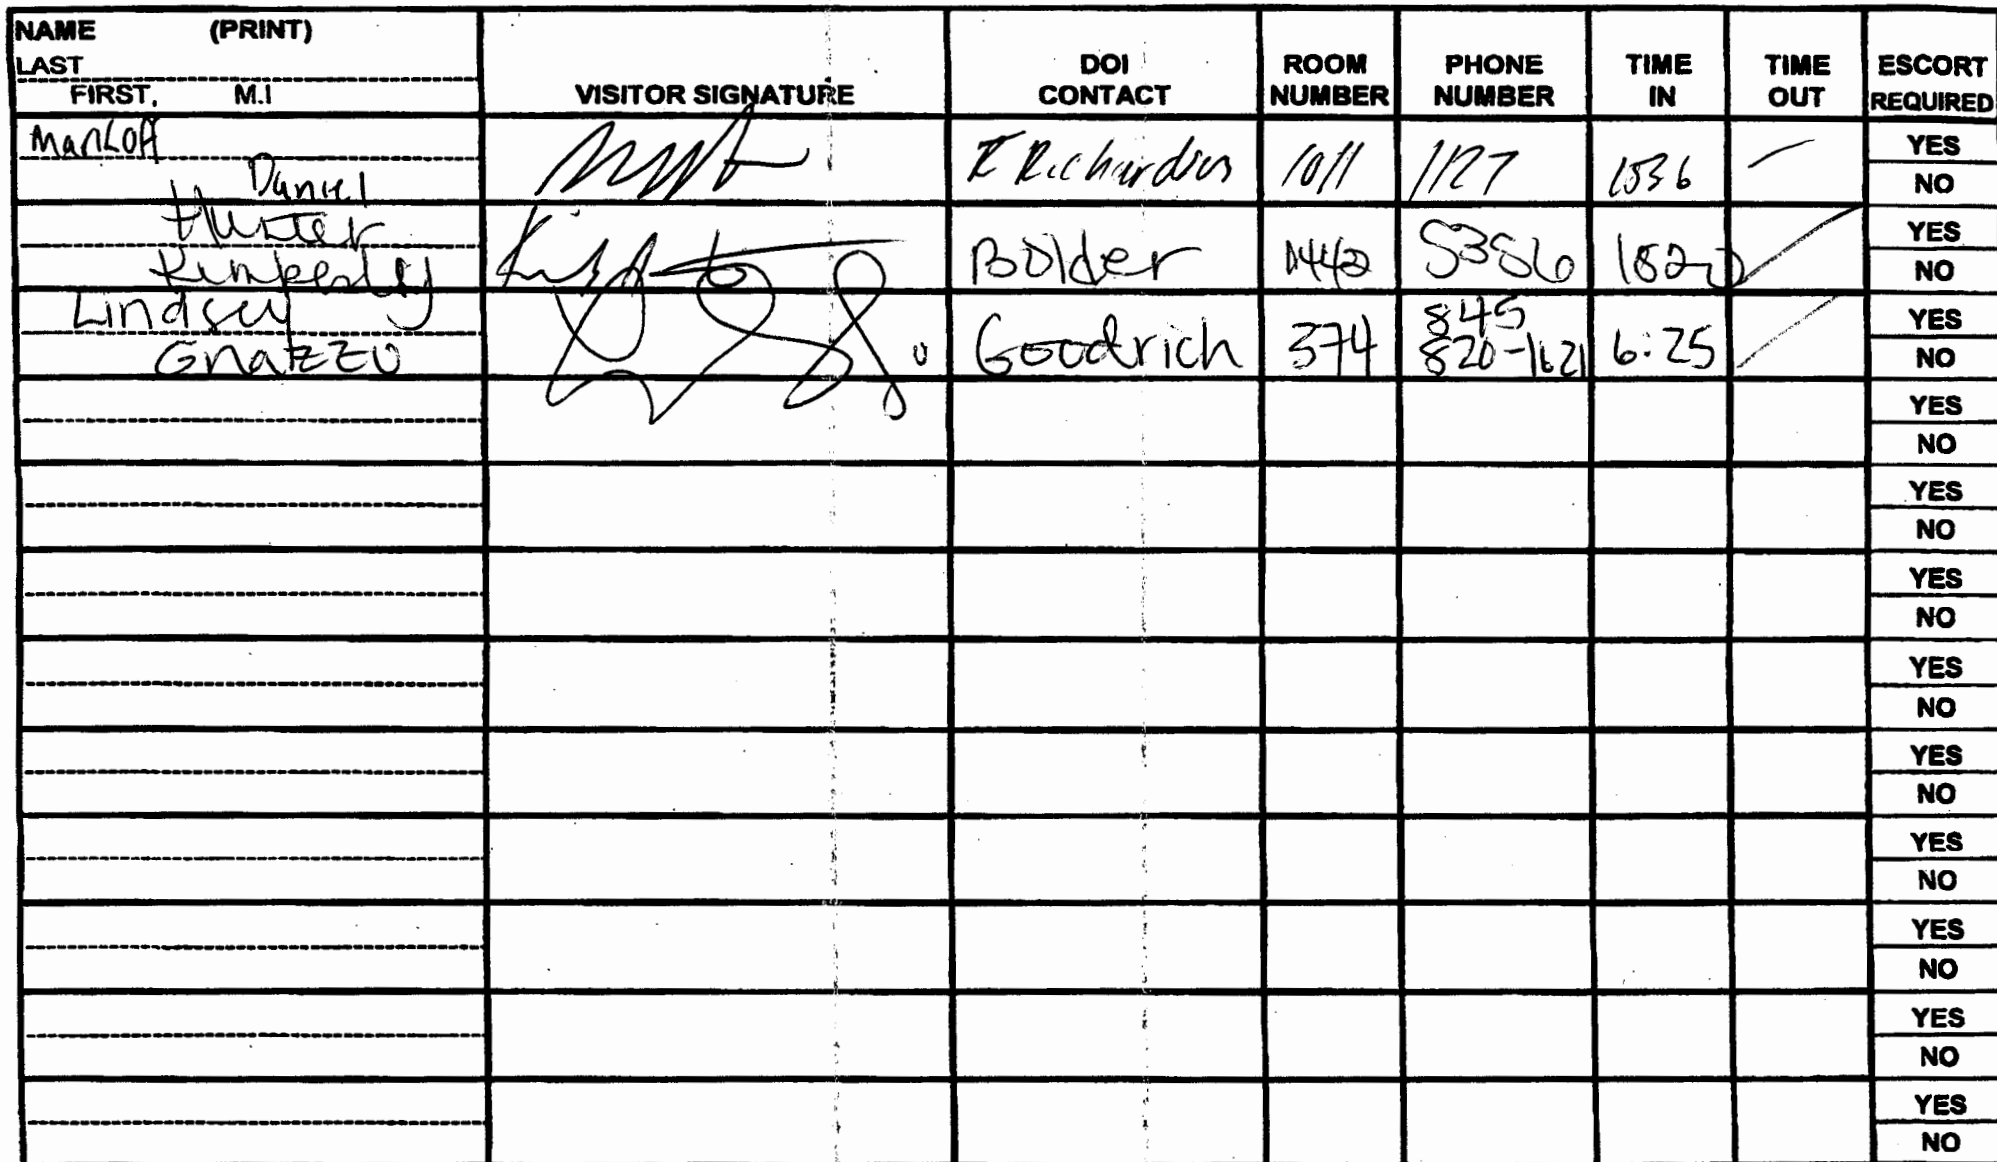 NAME (PRINT)
LAST
FIRST, M.I
VISITOR SIGNATURE
DOI CONTACT
ROOM NUMBER
PHONE NUMBER
TIME IN
TIME OUT
ESCORT REQUIRED
Daniel
K Richardson 1011 1127 YES
NO
Hunter
Kimberly
Bolder 5386 YES
NO
Lindsey
Gnazzo
Goodrich 374 845
820-1621 6:25 YES
NO
YES
NO
YES
NO
YES
NO
YES
NO
YES
NO
YES
NO
YES
NO
YES
NO
YES
NO